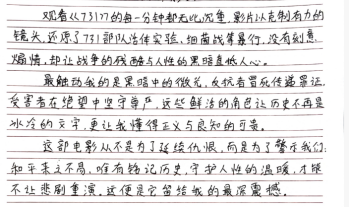 观看《731》的每一分钟都无比沉重,影片以克制有力的
镜头,还原了731部队活体实验、细菌战等暴行,没有刻意
煽情,却让战争的残酷与人性的黑暗直抵人心。
最触动我的是黑暗中的微光,反抗者冒死传递罪证,
受害者在绝望中坚守尊严,这些鲜活的角色让历史不再是
冰冷的文字,更让我懂得正义与良知的可贵。
这部电影从不是为了延续仇恨,而是为了警示我们:
和平来之不易,唯有铭记历史,守护人性的温暖,才能
不让悲剧重演。这便是它留给我的最深震撼。